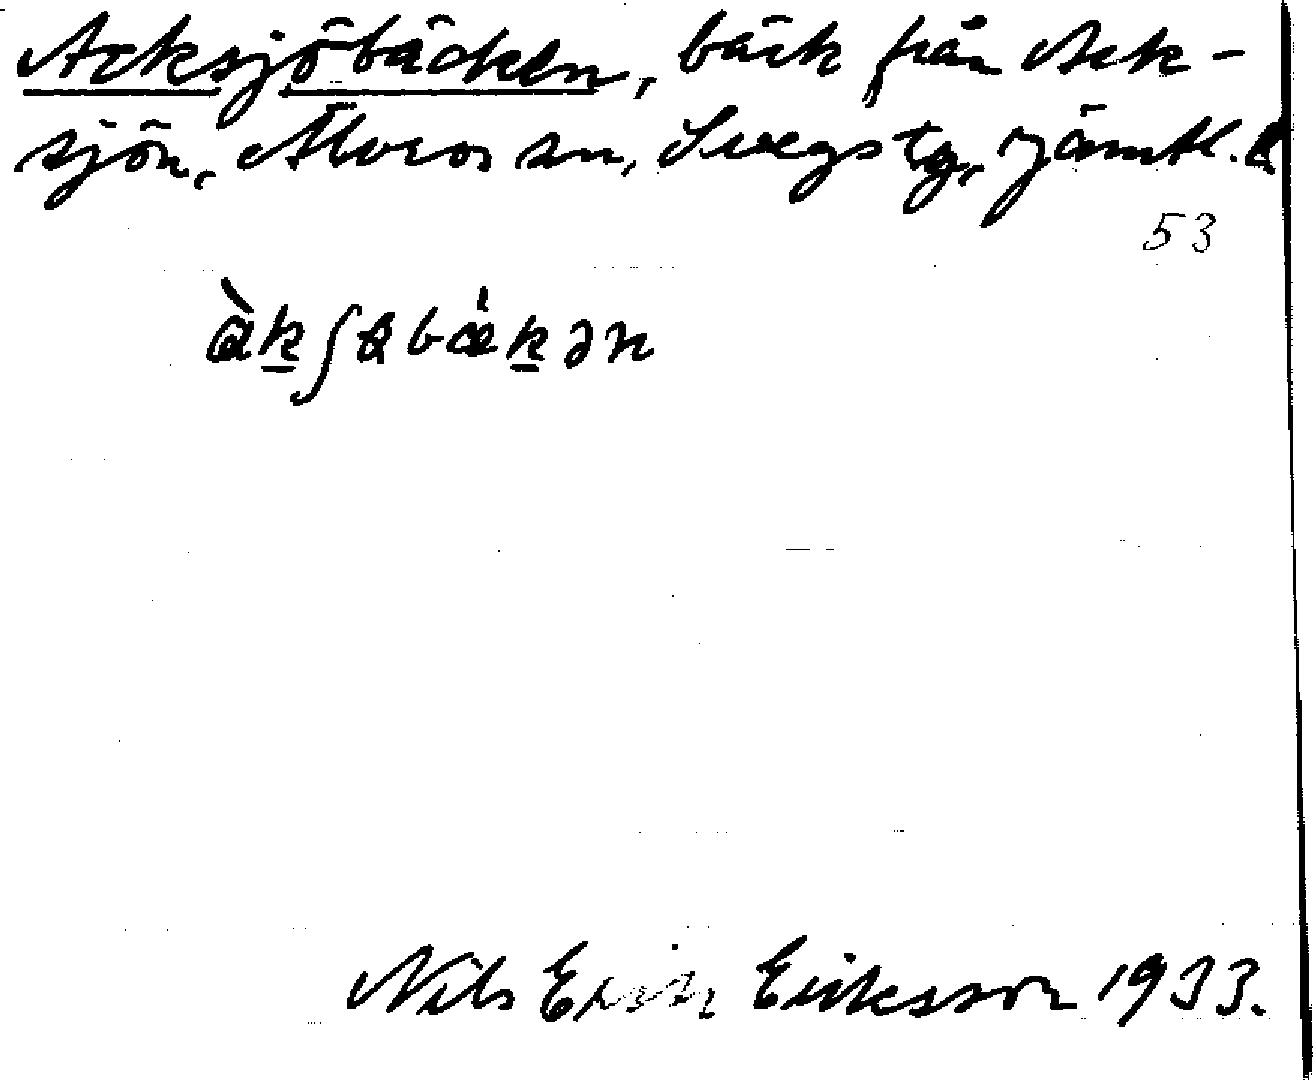 Acksjöbäcken, bäck från Ack-
sjön, Älvros sn, Svegs tg, Jämtl. l
53
àkʃɵbækən
Nils Erik Eriksson 1933.